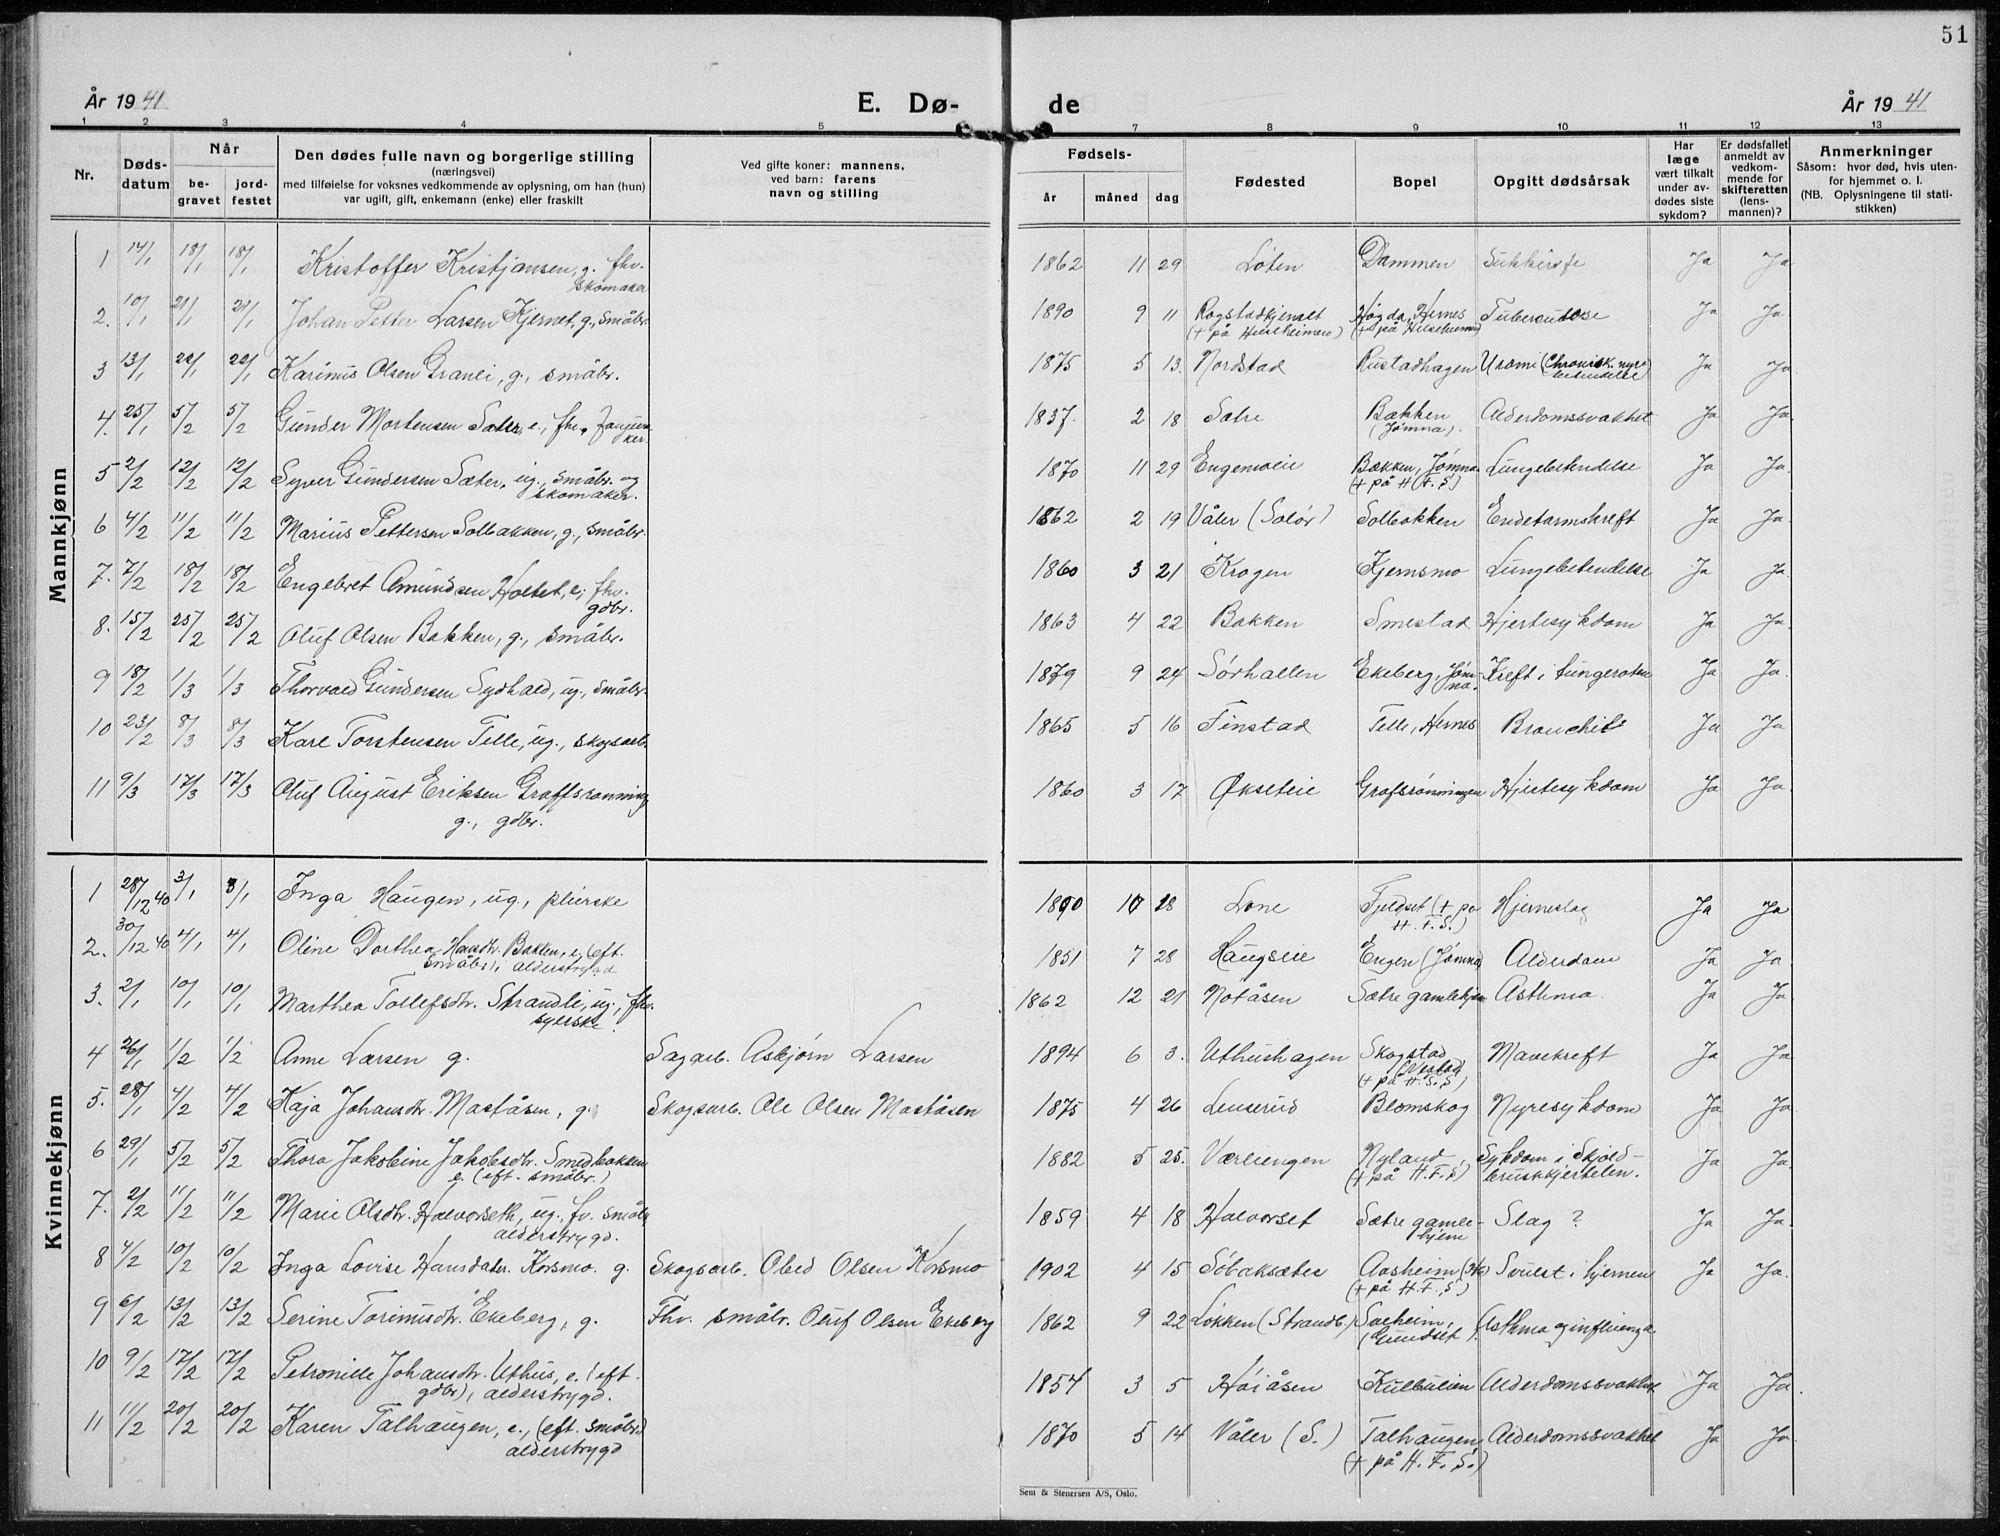 51
År 1941
E. Dø-
de
År 1941
1 2 3 4 5 7 8 9 10 11 12 13
Nr.
Døds-
datum
Når
be-
gravet
jord-
festet
Den dødes fulle navn og borgerlige stilling
(næringsvei)
med tilføielse for voksnes vedkommende av oplysning, om han (hun)
var ugift, gift, enkemann (enke) eller fraskilt
Ved gifte koner: mannens,
ved barn: farens
navn og stilling
Fødsels-
år måned dag
Fødested
Bopel
Opgitt dødsårsak
Har
læge
vært tilkalt
under av-
dødes siste
sykdom?
Er dødsfallet
anmeldt av
vedkom-
mende for
skifteretten
(lens-
mannen)?
Anmerkninger
Såsom: hvor død, hvis uten-
for hjemmet o. l.
(NB. Oplysningene til stati-
stikken)
Mannkjønn
1 14/1 18/1 18/1 Kristoffer Kristjansen, g. fhv. 1862 11 29 Løten Dammen Sukkersyke Ja Ja
skomaker
2. 10/1 21/1 21/1 Johan Petter Larsen Kjernet, g., småbr. 1890 9 11 Rogstadkjernet Høgda, Hernes Tuberculose Ja Ja
(+ på Heilheimen) (+ på Helseheimen)
3 13/1 22/1 22/1 Karinus Olsen Granli, g., småbr. 1875 5 13. Nordstad Rustadhagen Uræmi (Chronisk. nyre Ja Ja
betendelse
4. 25/1 5/2 5/2 Gunder Mortensen Sæter, e., fhv. 1837. 2 18 Sætre Bakken Alderdomssvakhet Ja Ja.
(Jømna).
5 2/2 12/2 12/2 Syver Gundersen Sæter, ug., småbr. og 1870 11 29 Engemoeie Bakken, Jømna Lungebetendelse Ja Ja.
skomaker. (+ på H.F.S)
6 4/2 11/2 11/2 Marius Pettersen Solbakken, g., småbr. 1862 2 19 Våler (Solør) Solbakken Endetarmskreft Ja Ja.
7. 7/2 18/2 18/2 Engebret Amundsen Holtet, e., fhv. 1860 3 21 Krogen Kjernsmo Lungebetendelse Ja Ja.
gdbr.
8. 15/2 25/2 25/2 Oluf Olsen Bakken, g., småbr. 1863 4 22 Bakken Smestad Hjertesykdom Ja Ja
9 18/2 1/3 1/3 Thorvald Gundersen Sydhald, ug., småbr. 1879 9 24 Sørhallen Ekeberg, Jøm- Kreft i tungeroten Ja Ja.
na.
10 23/2 8/3 8/3 Karl Torstensen Telle, ug., skogsarb. 1865 5 16 Finstad Telle, Hernes Bronchit Ja Ja
11 9/3 17/3 17/3 Oluf August Eriksen Graffsrønning 1860 3 17 Økseteie Grafsrønningen Hjertesykdom Ja Ja.
g., gdbr.
Kvinnekjønn
1 28/12 40 3/1 3/1 Inga Haugen, ug., pleierske 1890 10 28 Lone Fjeldset (+ på Hjerneslag Ja Ja
H.F.S.)
2. 30/12 40 4/1 4/1 Oline Dorthea Hansdtr. Bakken, e. (eft. 1851 7 28 Haugseie Engen (Jømna) Alderdom Ja Ja.
småbr), alderstrygd
3. 2/1 10/1 10/1 Marthea Tollefsdtr. Strandli, ug., fhv. 1862 12 21 Notåsen Sætre gamlehjem Asthma. Ja Ja.
syerske.
4 26/1 1/2 1/2 Anne Larsen g. Sagarb. Asbjørn Larsen 1894 6 3. Uthushagen Skogstad Mavekreft Ja Ja
(Vestad)
(+ på H.F.S)
5. 28/1 4/2 4/2 Kaja Johansdtr. Maståsen, g. Skogsarb. Ole Olsen Maståsen 1875 4 26 Lenserud Blomskog Nyresykdom Ja Ja.
6 29/1 5/2 5/2 Thora Jakobine Jakobsdtr. Smedbakken 1882 5 25. Værliengen Nyland Sykdom i skjold- Ja Ja.
e. (eft. småbr.) (+ på H.F.S) bruskkjertelen.
7. 2/2 11/2 11/2 Marie Olsdtr. Halvorseth, ug., fv. småbr 1859 4 18 Halvorset Sætre gamle- Slag ? Ja Ja.
alderstrygd. hjem
8 4/2 10/2 10/2 Inga Lovise Hansdatr. Korsmo. g. Skogsarb. Obed Olsen Korsmo 1902 4 15 Søbaksæter Aasheim Svulst i hjernen Ja Ja.
(+ på H.F.S)
9 6/2 13/2 13/2 Serine Torinusdtr. Ekeberg, g. Fhv. småbr. Oluf Olsen Ekeberg 1862 9 22 Løkken (Strandb.) Solheim, Asthma og influenza
(Grundset)
10 9/2 17/2 17/2 Petronille Johansdtr. Uthus, e. (eft. 1854 3 5 Høiåsen Kulbulien Alderdomssvakhet Ja Ja.
gdbr), alderstrygd.
11 11/2 20/2 20/2 Karen Talhaugen, e., (eft. småbr.) 1870 5 14 Våler (S.) Talhaugen Alderdomssvakhet Ja Ja.
alderstrygd (+ på H.F.S.)
Sem & Stenersen A/S, Oslo.